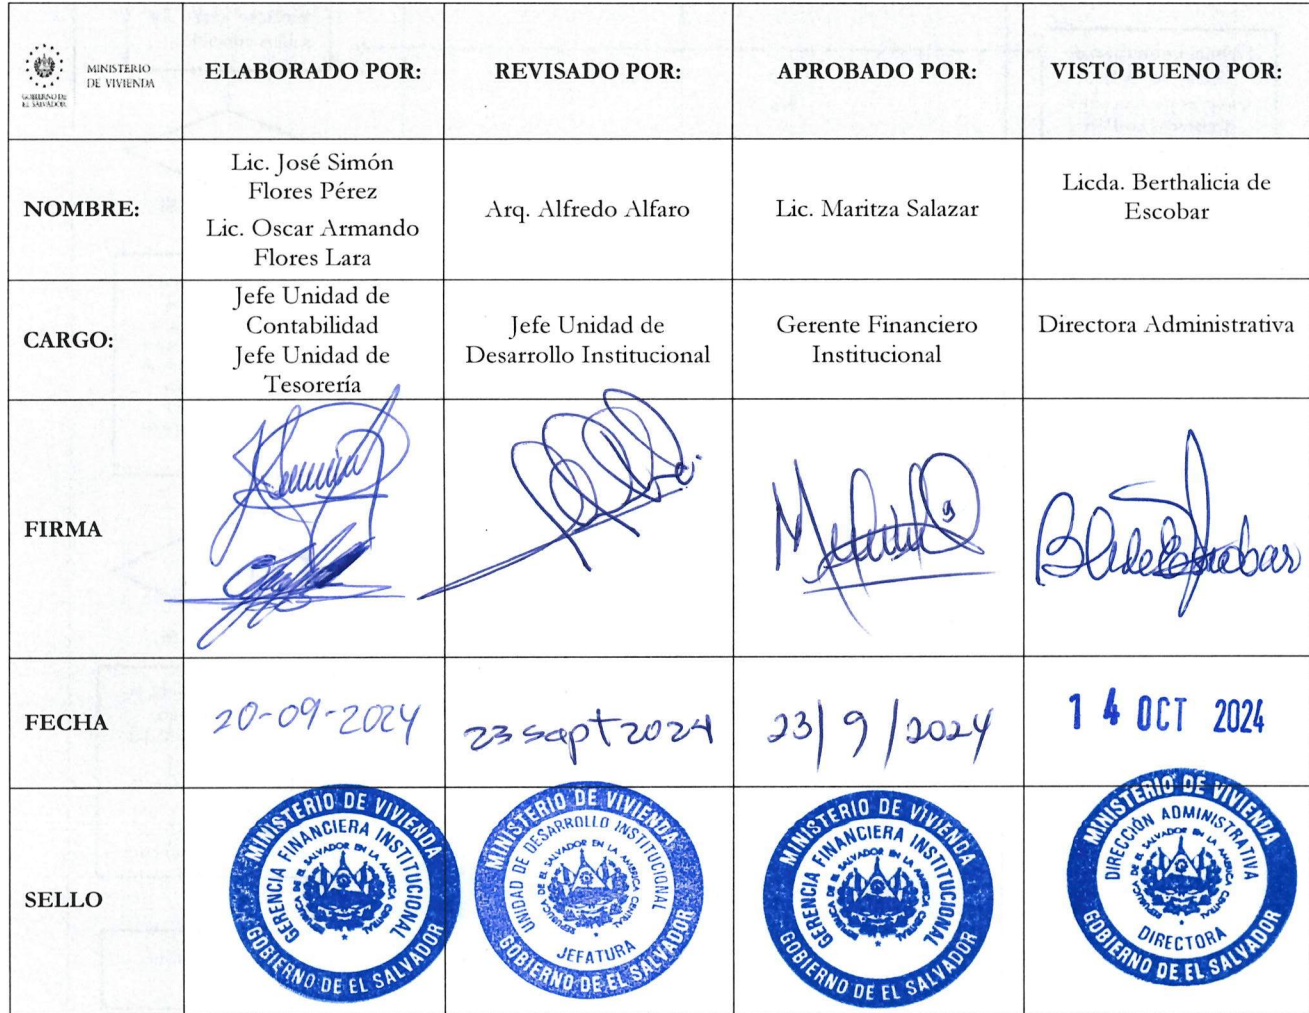 GOBIERNO DE
EL SALVADOR
MINISTERIO
DE VIVIENDA
ELABORADO POR:
REVISADO POR:
APROBADO POR:
VISTO BUENO POR:
NOMBRE:
Lic. José Simón
Flores Pérez
Lic. Oscar Armando
Flores Lara
Arq. Alfredo Alfaro
Lic. Maritza Salazar
Licda. Berthalicia de
Escobar
CARGO:
Jefe Unidad de
Contabilidad
Jefe Unidad de
Tesorería
Jefe Unidad de
Desarrollo Institucional
Gerente Financiero
Institucional
Directora Administrativa
FIRMA
FECHA
20-09-2024
23 sept 2024
23/9/2024
14 OCT 2024
SELLO
MINISTERIO DE VIVIENDA
GERENCIA FINANCIERA INSTITUCIONAL
REPUBLICA DE EL SALVADOR EN LA AMERICA CENTRAL
GOBIERNO DE EL SALVADOR
MINISTERIO DE VIVIENDA
UNIDAD DE DESARROLLO INSTITUCIONAL
REPUBLICA DE EL SALVADOR EN LA AMERICA CENTRAL
JEFATURA
GOBIERNO DE EL SALVADOR
MINISTERIO DE VIVIENDA
GERENCIA FINANCIERA INSTITUCIONAL
REPUBLICA DE EL SALVADOR EN LA AMERICA CENTRAL
GOBIERNO DE EL SALVADOR
MINISTERIO DE VIVIENDA
DIRECCIÓN ADMINISTRATIVA
REPUBLICA DE EL SALVADOR EN LA AMERICA CENTRAL
DIRECTORA
GOBIERNO DE EL SALVADOR